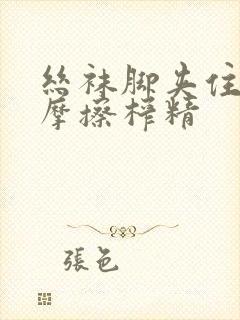 丝袜脚夹住
摩擦榨精
张色